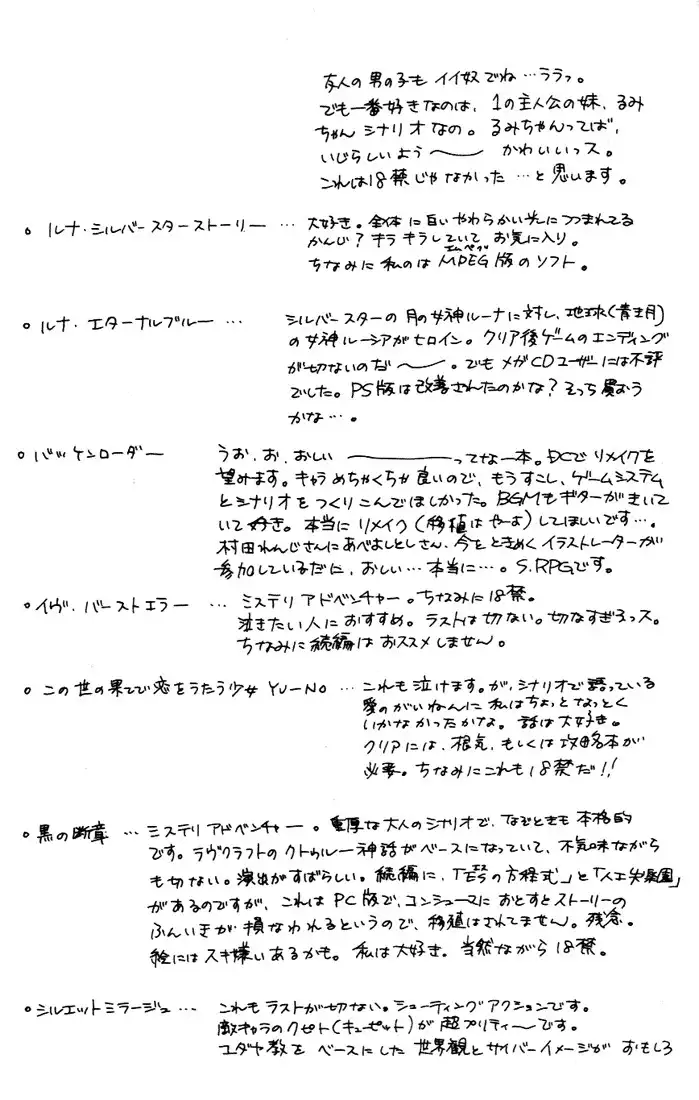 友人の男の子も イイ奴でね…ララっ。
でも一番好きなのは、1の主人公の妹、るみ
ちゃん シナリオなの。るみちゃんってば、
いじらしいよう〜 かわいいっス。
これは18禁じゃなかった …と思います。
○ ルナ・シルバースターストーリー … 大好き。全体に白いやわらかい光につつまれてる
かんじ？キラキラしていて、お気に入り。
エムペグ
ちなみに 私のは MPEG版のソフト。
○ ルナ・エターナルブルー … シルバースターの 月の女神ルーナに対し、地球(青き月)
の女神ルーシアがヒロイン。クリア後ゲームのエンディング
が切ないのだ〜。でもメガCDユーザーには不評
でした。PS版は改善されたのかな？そっち買おう
かな…。
○ バッケンローダー うお、お、おしい ―――ってな一本。DCで リメイクを
望みます。キャラめちゃくちゃ良いので、もうすこし、ゲームシステム
とシナリオをつくりこんでほしかった。BGMもギターがきいて
いて好き。本当に リメイク(移植はやーよ)してほしいです…。
村田れんじさんにあべよしとしさん、今をときめくイラストレーターが
参加しているだに、おしい…本当に…。S.RPGです。
○ イヴ・バーストエラー … ミステリアドベンチャー。ちなみに18禁。
泣きたい人におすすめ。ラストは切ない。切なすぎるっス。
ちなみに続編はおススメしません。
○ この世の果てで恋をうたう少女 YU-NO … これも泣けます。が、シナリオで語っている
愛のがいねんに 私はちょっとなっとく
いかなかったかな。話は大好き。
クリアには、根気、もしくは攻略本が
必要。ちなみにこれも18禁だ!!
○ 黒の断章 … ミステリアドベンチャー。重厚な大人のシナリオで、なぞときも本格的
です。ラヴクラフトのクトゥルー神話がベースになっていて、不気味ながら
も切ない。演出がすばらしい。続編に、「の方程式」と「人工失楽園」
があるのですが、これはPC版で、コンシューマにおとすとストーリーの
ふんいきが損なわれるというので、移植はされてません。残念。
絵にはスキ嫌いあるかも。私は大好き。当然ながら18禁。
○ シルエットミラージュ … これもラストが切ない。シューティングアクションです。
敵キャラのクピト(キューピット)が超プリティ〜です。
ユダヤ教を ベースにした 世界観とサイバーイメージが おもしろ